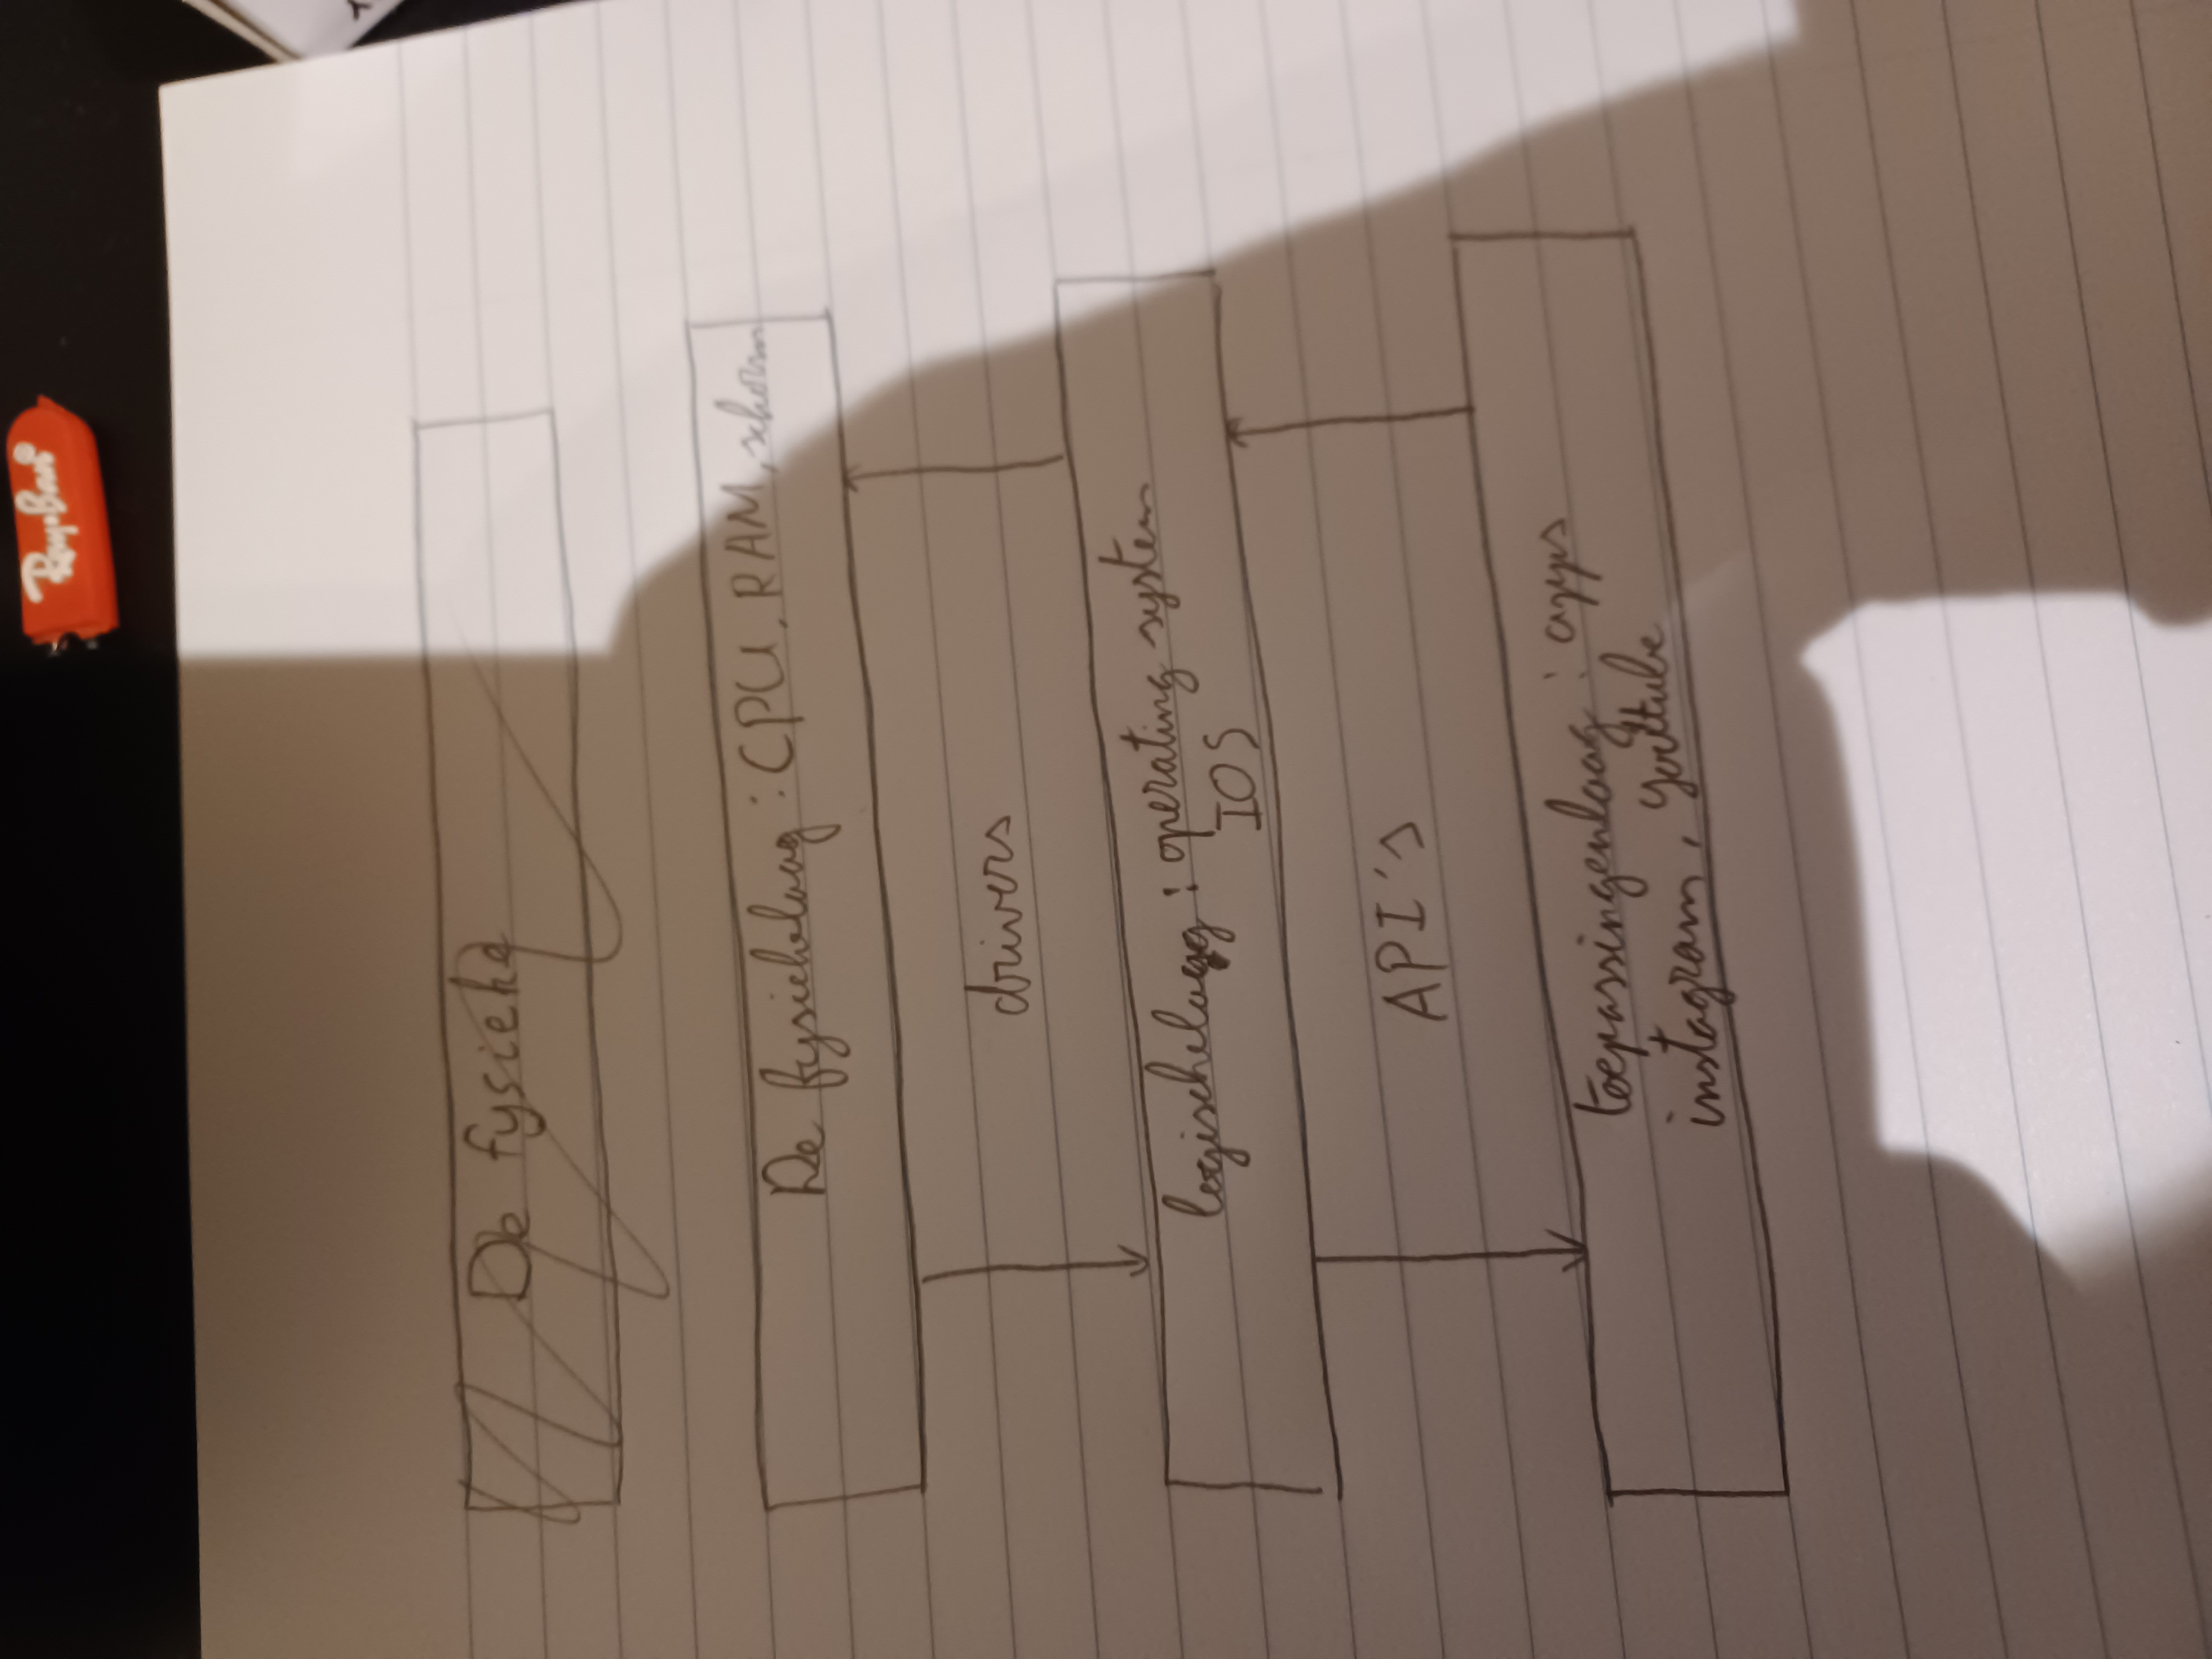 Ray-Ban
De fysieke
De fysiekelaag : CPU, RAM, scherm
drivers
logischelaag : operating system
IOS
API's
toepassingenlaag : apps
instagram, youtube